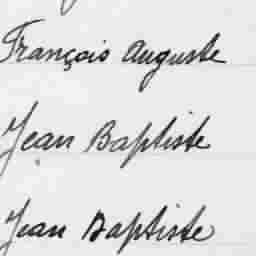 François Auguste
Jean Baptiste
Jean Baptiste